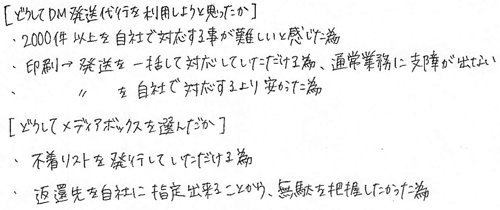 [どうしてDM発送代行を利用しようと思ったか]
・2000件以上を自社で対応する事が難しいと感じた為
・印刷→発送を一括して対応していただける為、通常業務に支障が出ない
・ 〃 を自社で対応するより安かった為
[どうしてメディアボックスを選んだか]
・不着リストを発行していただける為
・返還先を自社に指定出来ることから、無駄を把握したかった為